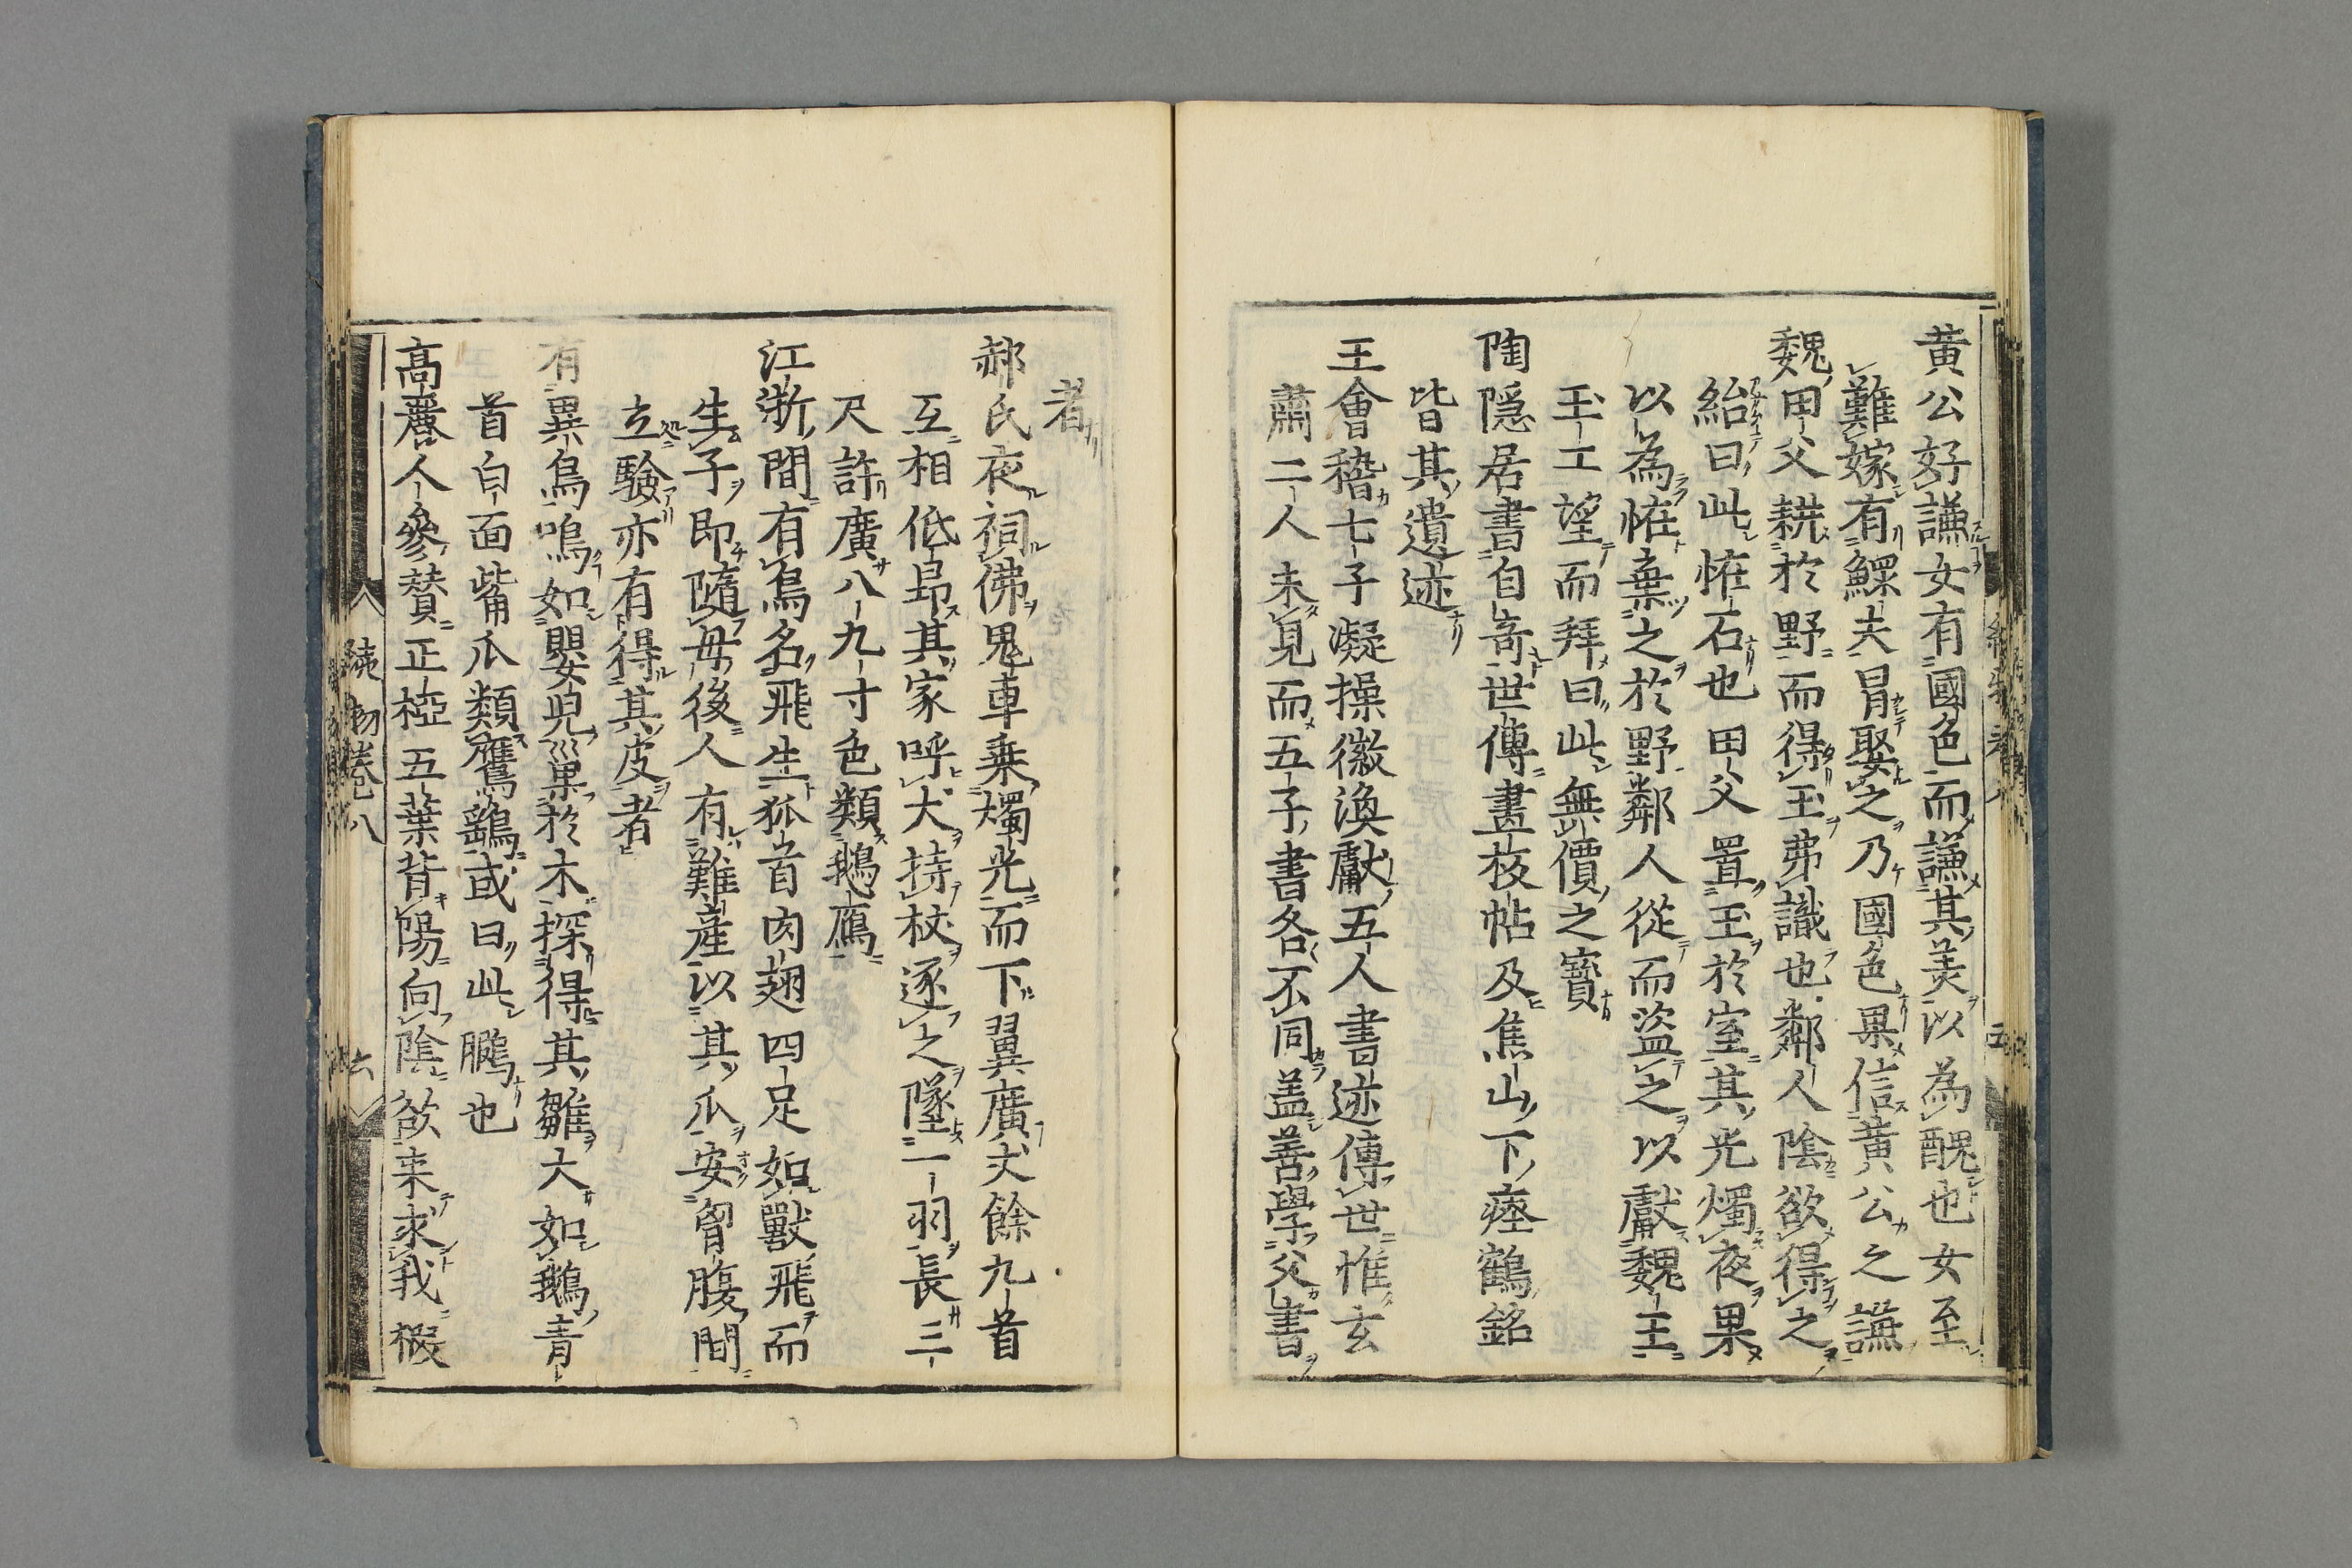 黄公好謙女有國色而謙其美以為醜也女至
難嫁有鰥夫冒娶之乃國色果信黄公之謙
魏田父耕於野而得玉弗識也鄰人陰欲得之
紿曰此恠石也田父置玉於室其光燭夜果
以為恠棄之於野鄰人從而盗之以獻魏王
玉工望而拜曰此無價之寳
陶隠居書自竒世傳畫板帖及焦山下瘞鶴銘
皆其遺迹
王會稽七子凝操徽渙獻五人書迹傳世惟玄
肅二人未見而五子書各不同盖善學父書
者
郝氏夜祠佛鬼車乗燭光而下翼廣丈餘九首
互相低昂其家呼犬持杖逐之墜一羽長三
尺許廣八九寸色類鵝鴈
江浙間有鳥名飛生狐首肉翅四足如獸飛而
生子即隨母後人有難産以其爪安胷腹間
立驗亦有得其皮者
有異鳥鳴如嬰兒巢於木探得其雛大如鵝青
首白面觜爪類鷹鷂或曰此鵩也
高麗人參賛三椏五葉背陽向隂欲来求我椵
物巻八
六